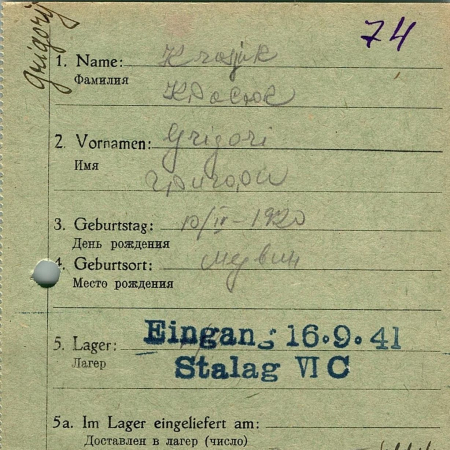 grigorij
74
1. Name:
Фамилия
2. Vornamen: Grigori
Имя Григори
3. Geburtstag: 10/II-1920
День рождения
4. Geburtsort: Медвин
Место рождения
5. Lager: Eingang 16.9.41
Лагер Stalag VI C
5a. Im Lager eingeliefert am:
Доставлен в лагер (число)